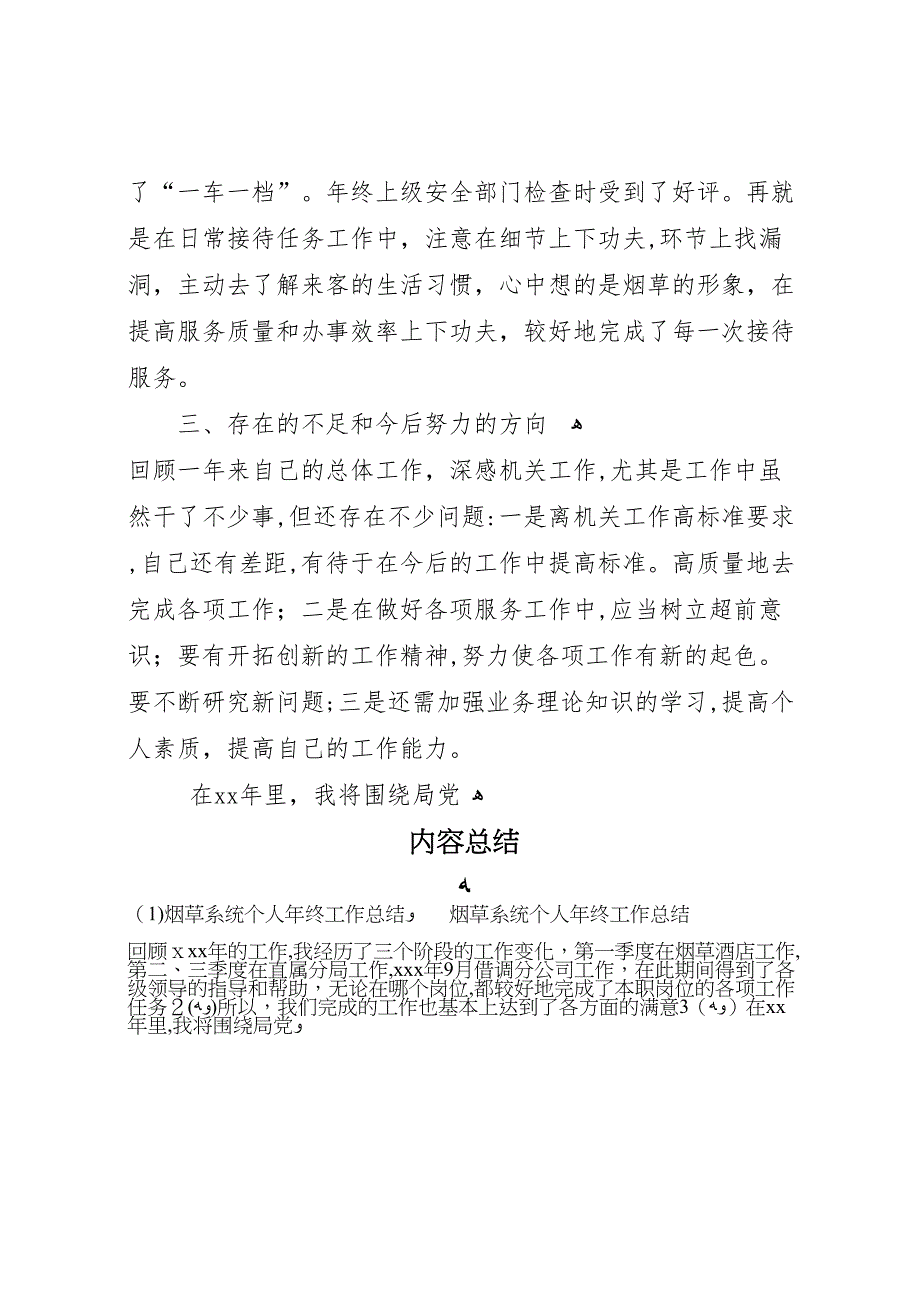 了“一车一档”。年终上级安全部门检查时受到了好评。再就
是在日常接待任务工作中，注意在细节上下功夫,环节上找漏
洞，主动去了解来客的生活习惯，心中想的是烟草的形象，在
提高服务质量和办事效率上下功夫，较好地完成了每一次接待
服务。
三、存在的不足和今后努力的方向 ﻫ
回顾一年来自己的总体工作，深感机关工作,尤其是工作中虽
然干了不少事,但还存在不少问题:一是离机关工作高标准要求
,自己还有差距,有待于在今后的工作中提高标准。高质量地去
完成各项工作；二是在做好各项服务工作中,应当树立超前意
识；要有开拓创新的工作精神,努力使各项工作有新的起色。
要不断研究新问题;三是还需加强业务理论知识的学习,提高个
人素质，提高自己的工作能力。
在xx年里，我将围绕局党 ﻫ
内容总结
（1)烟草系统个人年终工作总结 烟草系统个人年终工作总结
回顾ｘxx年的工作,我经历了三个阶段的工作变化，第一季度在烟草酒店工作,
第二、三季度在直属分局工作,xxx年9月借调分公司工作，在此期间得到了各
级领导的指导和帮助，无论在哪个岗位,都较好地完成了本职岗位的各项工作
任务２()所以，我们完成的工作也基本上达到了各方面的满意3（）在xx
年里,我将围绕局党